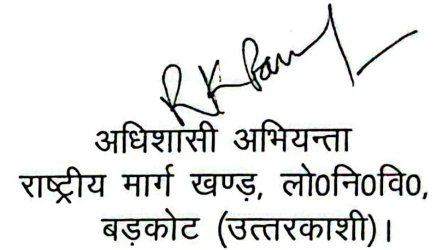 अधिशासी अभियन्ता
राष्ट्रीय मार्ग खण्ड़, लो०नि०वि०,
बड़कोट (उत्तरकाशी)।